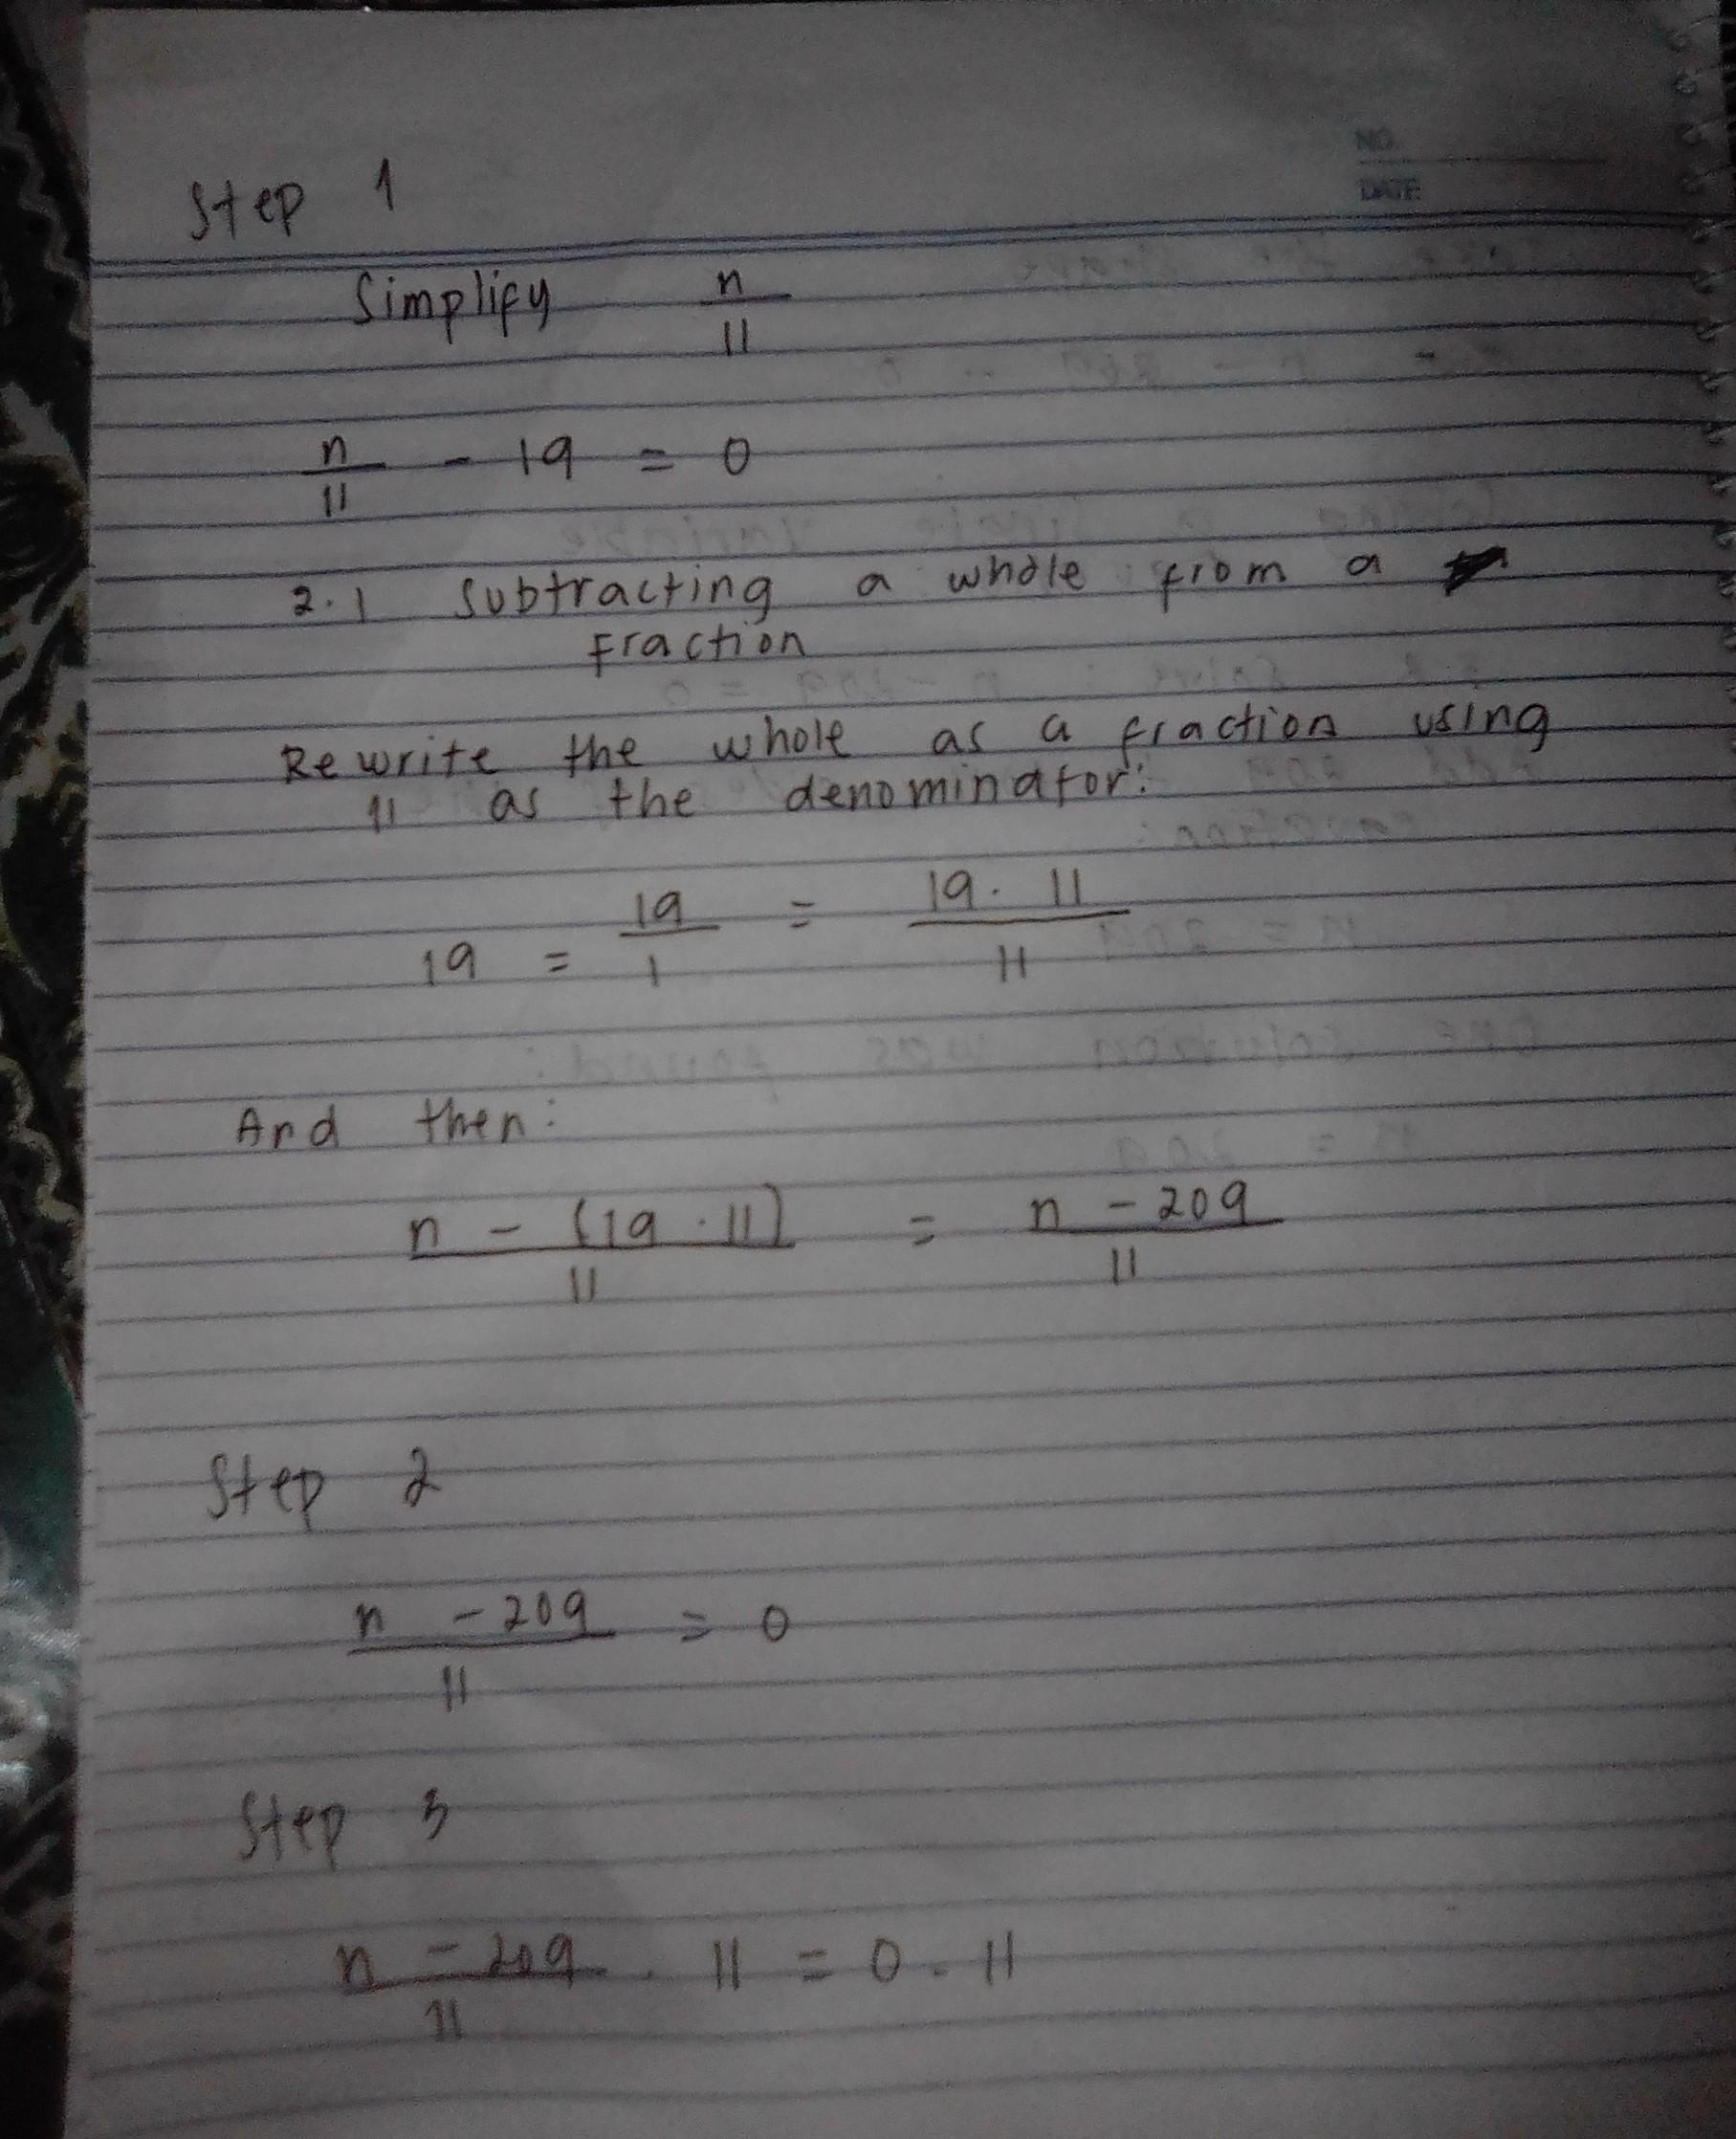 NO.
DATE
Step 1
Simplify n/11
n/11 - 19 = 0
2.1 Subtracting a whole from a
Fraction
Rewrite the whole as a fraction using
11 as the denominator:
19 = 19/1 = 19 . 11/11
And then:
n - (19 . 11)/11 = n - 209/11
Step 2
n - 209/11 = 0
Step 3
n - 209/11 . 11 = 0 . 11